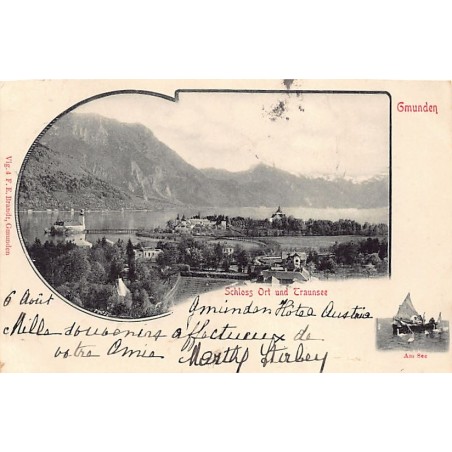 Gmunden
Vlg. v. F. E. Brandt, Gmunden
Schloss Ort und Traunsee
6 Août
Gmünden Hôtel Austria
Mille souvenirs affectueux de
votre Amie Marthe
Am See